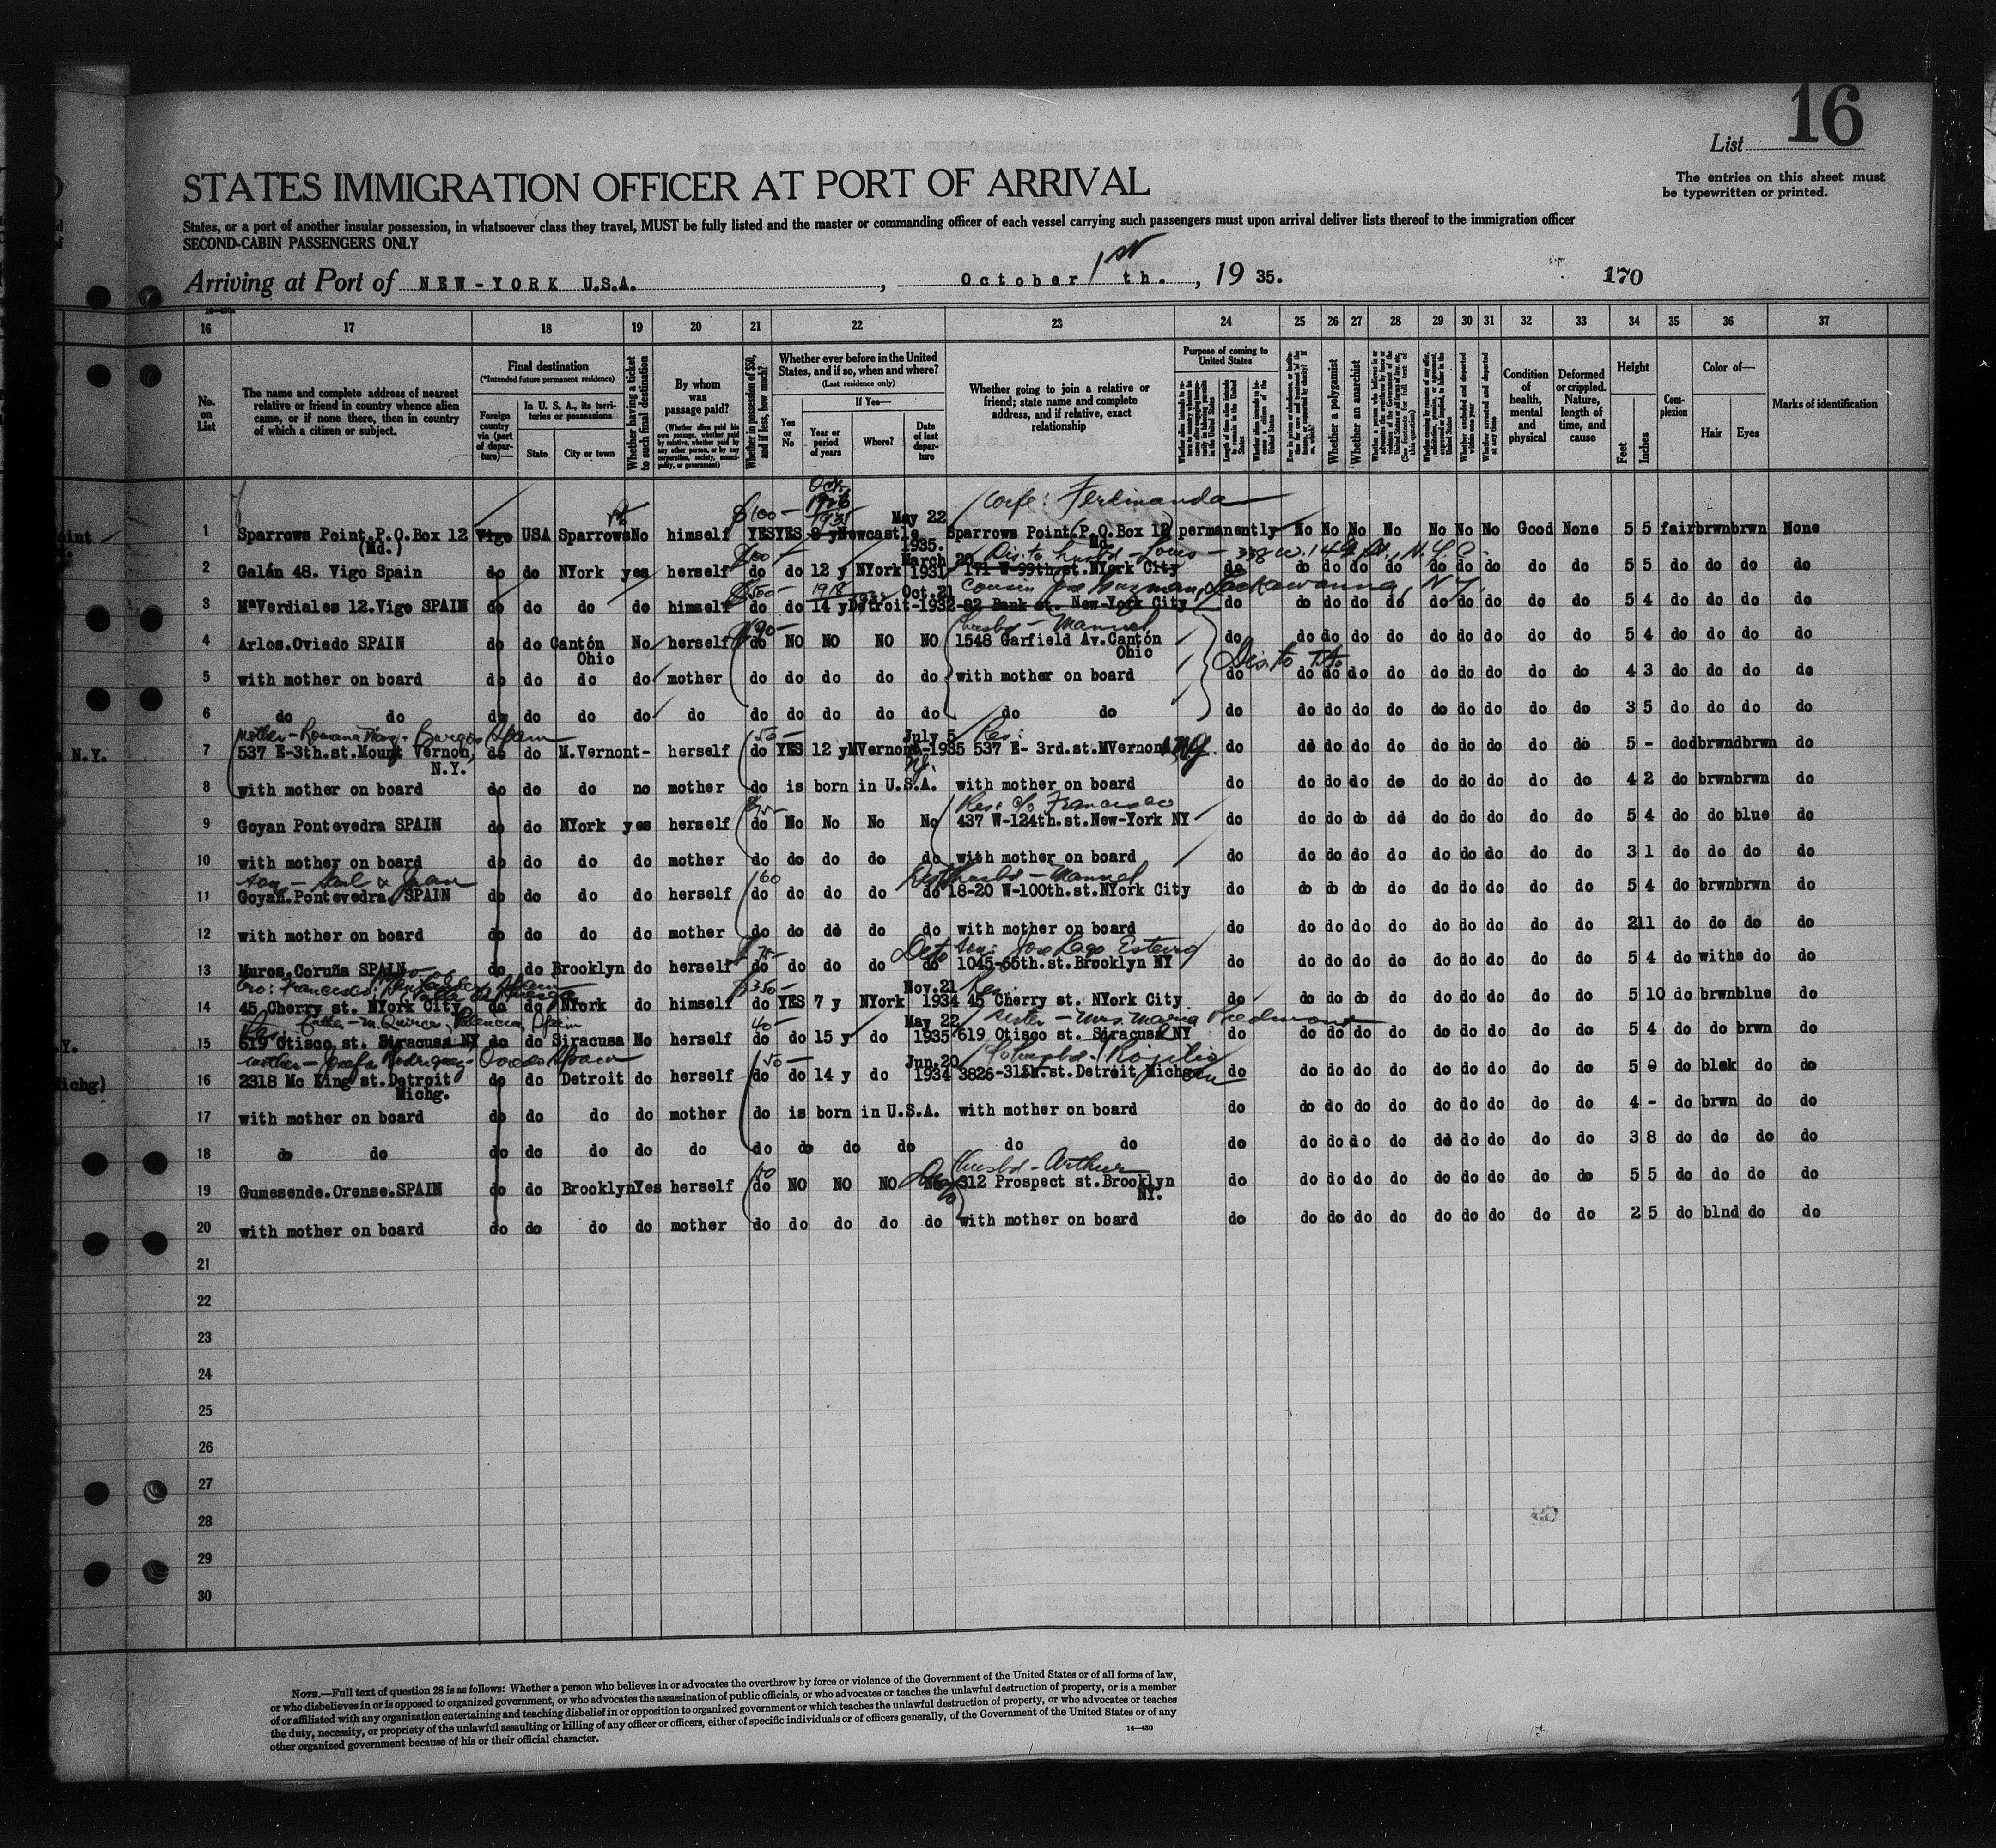 16
List
The entries on this sheet must
be typewritten or printed.
STATES IMMIGRATION OFFICER AT PORT OF ARRIVAL
States, or a port of another insular possession, in whatsoever class they travel, MUST be fully listed and the master or commanding officer of each vessel carrying such passengers must upon arrival deliver lists thereof to the immigration officer
SECOND-CABIN PASSENGERS ONLY
Arriving at Port of NEW-YORK U.S.A. , October 1st th. , 19 35.
170
16 17 18 19 20 21 22 23 24 25 26 27 28 29 30 31 32 33 34 35 36 37
No. on List
The name and complete address of nearest relative or friend in country whence alien came, or if none there, then in country of which a citizen or subject.
Final destination
(*Intended future permanent residence)
Foreign country via (port of departure)—
In U. S. A., its territories or possessions—
State
City or town
Whether having a ticket to such final destination
By whom was passage paid?
(Whether alien paid his own passage, whether paid by relative, whether paid by any other person, or by any corporation, society, municipality, or government)
Whether in possession of $50, and if less, how much?
Whether ever before in the United States, and if so, when and where?
(Last residence only)
Yes or No
If Yes—
Year or period of years
Where?
Date of last departure
Whether going to join a relative or friend; state name and complete address, and if relative, exact relationship
Purpose of coming to United States
Length of time alien intends to remain in the United States
Whether alien intends to become a citizen of the United States
Whether a polygamist
Whether an anarchist
Whether excluded and deported within one year
Whether arrested and deported at any time
Condition of health, mental and physical
Deformed or crippled. Nature, length of time, and cause
Height
Feet
Inches
Complexion
Color of—
Hair
Eyes
Marks of identification
Oct.
1926
wife: Ferdinanda
$100- 1935 May 22
1 Sparrows Point.P.O.Box 12 Vigo USA Sparrows No himself YES YES 8 y Newcastle Sparrows Point.P.O.Box 12 permanently No No No No No No No Good None 5 5 fair brwn brwn None
(Md.) 1935. Md.
March 20 Dis. to husbd - Louis - W. 149 St., N.Y.C.
2 Galán 48. Vigo Spain do do NYork yes herself do do 12 y NYork 1931 171 W-99th.st.NYork City do do do do do do do do do do 5 5 do do do do
$500- 1918 Oct.21 cousin Jose Guzman, Lackawanna, N.Y.
3 MªVerdiales 12.Vigo SPAIN do do do do himself do do 14 y Detroit-1932 82 Bank st. New-York City do do do do do do do do do do 5 4 do do do do
$90- husbd - Manuel
4 Arlos.Oviedo SPAIN do do Cantón No herself do NO NO NO NO 1548 Garfield Av.Cantón do do do do do do do do do do 5 4 do do do do
Ohio Ohio
Dis. to
5 with mother on board do do do do mother do do do do do with mother on board do do do do do do do do do do 4 3 do do do do
6 do do do do do do do do do do do do do do do do do do do do do do do do 3 5 do do do do
mother - Romana Burgos Spain 50- July 5 Res:
7 537 E-3th.st.Mount Vernon, do do M.Vernont- herself do YES 12 y MVernont-1935 537 E- 3rd.st.MVernont NY. do do do do do do do do do do 5 - do dbrwn dbrwn do
N.Y.
8 with mother on board do do do no mother do is born in U.S.A. with mother on board do do do do do do do do do do 4 2 do brwn brwn do
Res: c/o Francisco
9 Goyan Pontevedra SPAIN do do NYork yes herself do No No No No 437 W-124th.st.New-York NY do do do do do do do do do do 5 4 do do blue do
10 with mother on board do do do do mother do do do do do with mother on board do do do do do do do do do do 3 1 do do do do
60 husbd - Manuel
11 Goyan.Pontevedra SPAIN do do do do herself do do do do do 18-20 W-100th.st.NYork City do do do do do do do do do do 5 4 do brwn brwn do
12 with mother on board do do do do mother do do do do do with mother on board do do do do do do do do do do 2 11 do do do do
son: Jose Lago Esteiro
13 Muros.Coruña SPAIN do do Brooklyn do herself do do do do do 1045-65th.st.Brooklyn NY do do do do do do do do do do 5 4 do withe do do
bro: Francisco $350- Nov.21 Res:
14 45 Cherry st. NYork City do do NYork do himself do YES 7 y NYork 1934 45 Cherry st. NYork City do do do do do do do do do do 5 10 do brwn blue do
Palencia, Spain 40- May 22 sister - Mrs. Maria
15 619 Otisco st. Siracusa NY do do Siracusa No herself do do 15 y do 1935 619 Otisco st. Siracusa NY do do do do do do do do do do 5 4 do do brwn do
mother - Josefa Rodriguez - Oviedo Spain 50- Jun.20 husbd. Rogelio
16 2318 Mc King st.Detroit do do Detroit do herself do do 14 y do 1934 3826-31th.st.Detroit Michgan do do do do do do do do do do 5 0 do blak do do
Michg.
17 with mother on board do do do do mother do is born in U.S.A. with mother on board do do do do do do do do do do 4 - do brwn do do
18 do do do do do do do do do do do do do do do do do do do do do do do do 3 8 do do do do
husbd - Arthur
19 Gumesende.Orense.SPAIN do do Brooklyn Yes herself do NO NO NO No 312 Prospect st.Brooklyn do do do do do do do do do do 5 5 do do do do
NY.
20 with mother on board do do do do mother do do do do do with mother on board do do do do do do do do do do 2 5 do blnd do do
21
22
23
24
25
26
27
28
29
30
NOTE.—Full text of question 28 is as follows: Whether a person who believes in or advocates the overthrow by force or violence of the Government of the United States or of all forms of law,
or who disbelieves in or is opposed to organized government, or who advocates the assassination of public officials, or who advocates or teaches the unlawful destruction of property, or is a member
of or affiliated with any organization entertaining and teaching disbelief in or opposition to organized government or which teaches the unlawful destruction of property, or who advocates or teaches
the duty, necessity, or propriety of the unlawful assaulting or killing of any officer or officers, either of specific individuals or of officers generally, of the Government of the United States or of any
other organized government because of his or their official character.
14—430